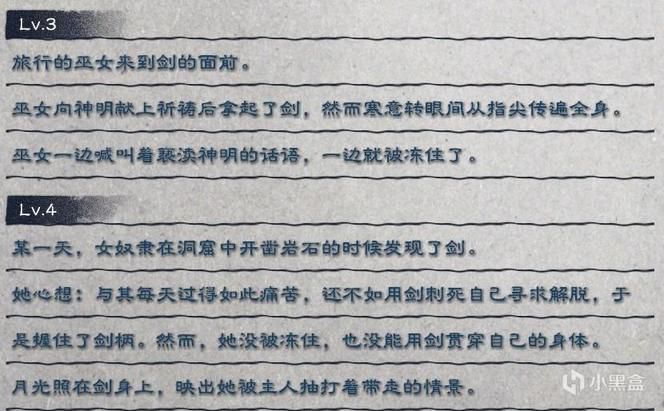 Lv.3
旅行的巫女来到剑的面前。
巫女向神明献上祈祷后拿起了剑，然而寒意转眼间从指尖传遍全身。
巫女一边喊叫着亵渎神明的话语，一边就被冻住了。
Lv.4
某一天，女奴隶在洞窟中开凿岩石的时候发现了剑。
她心想：与其每天过得如此痛苦，还不如用剑刺死自己寻求解脱，于
是握住了剑柄。然而，她没被冻住，也没能用剑贯穿自己的身体。
月光照在剑身上，映出她被主人抽打着带走的情景。
小黑盒